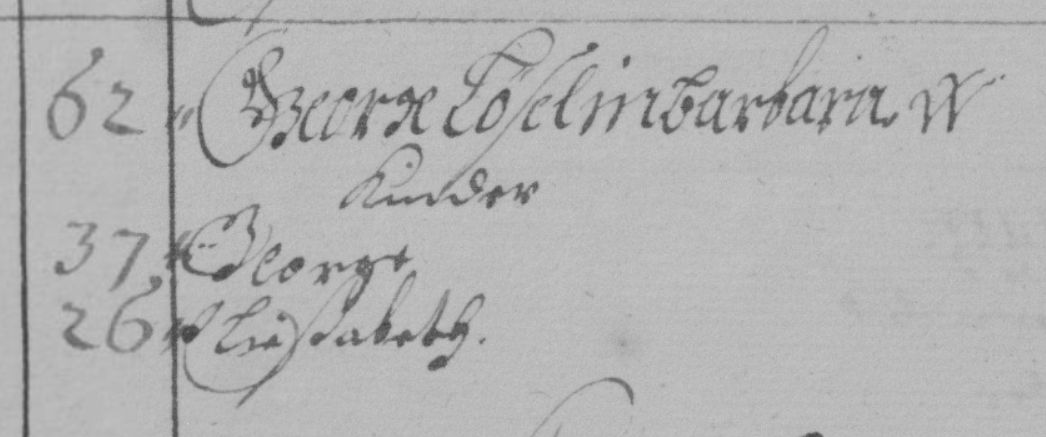 62 George Löselin Barbara W
Kinder
37 George
26 Eliesabeth.